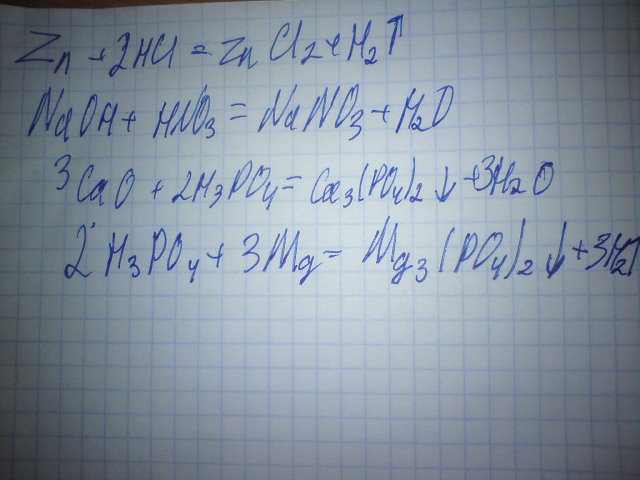 Zn + 2HCl = ZnCl2 + H2↑
NaOH + HNO3 = NaNO3 + H2O
3CaO + 2H3PO4 = Ca3(PO4)2↓ + 3H2O
2H3PO4 + 3Mg = Mg3(PO4)2↓ + 3H2↑